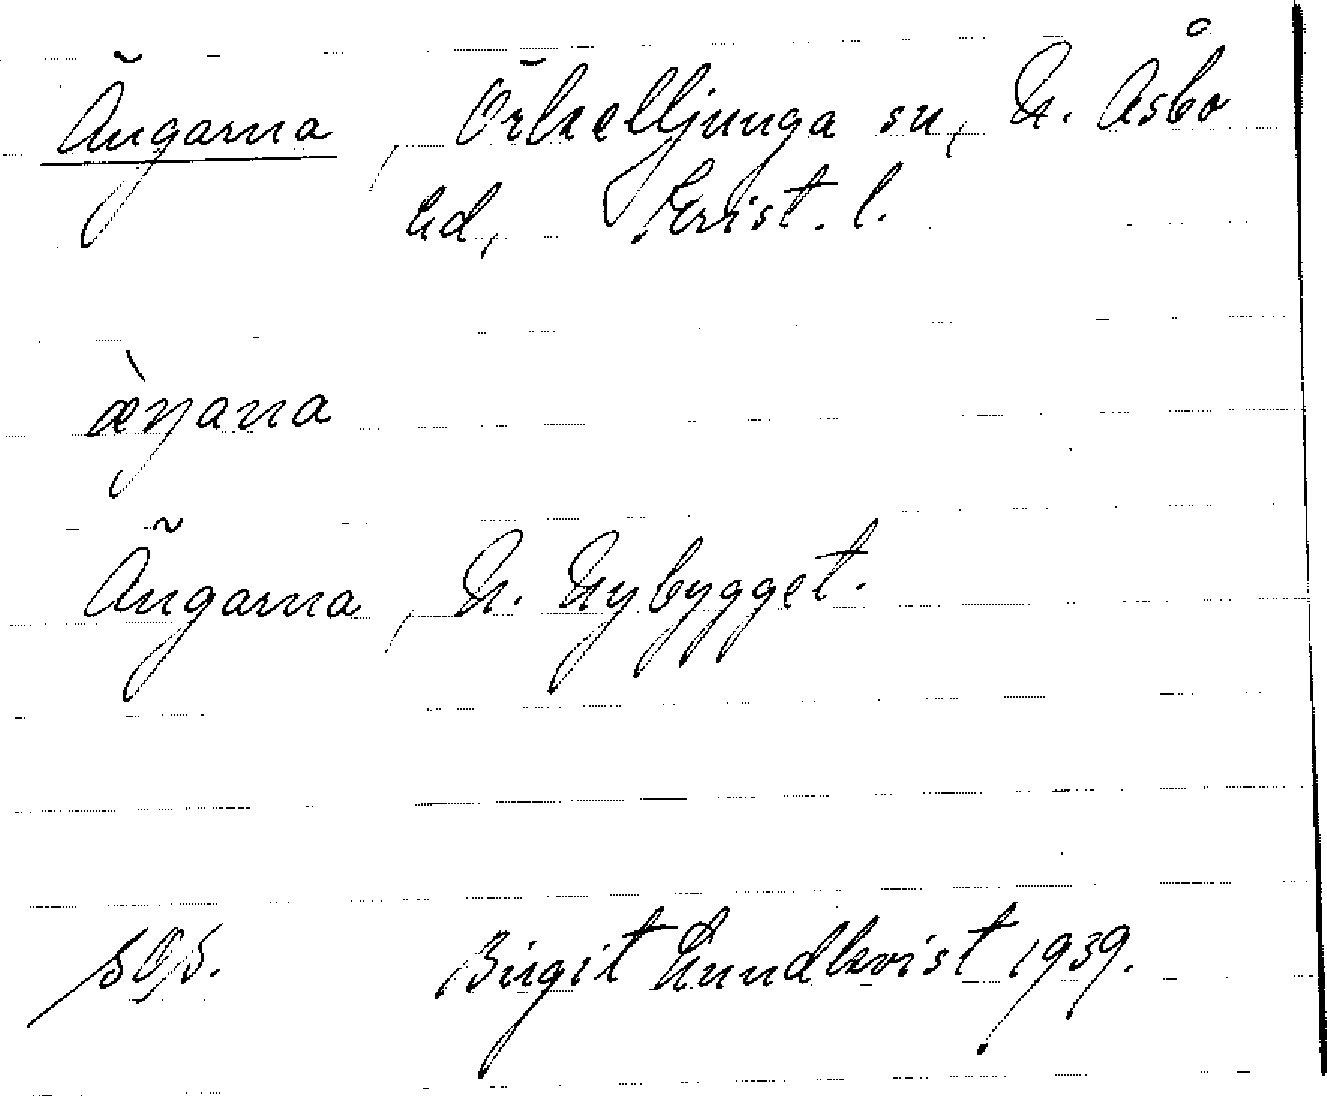 Ängarna, Örkelljunga sn, N. Åsbo
hd, Krist. l.
æ̀ŋana
Ängarna, N. Nybygget.
SOS. Birgit Lundkvist 1939.